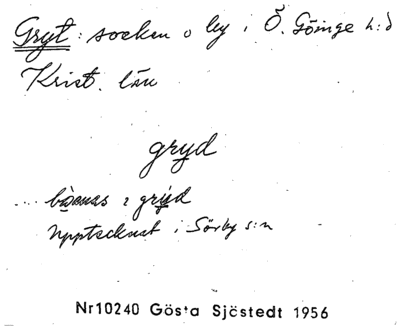 Gryt: socken o by i Ö. Göinge h:d
Krist. län
gryd
... i gryd
Upptecknat i Sörby s:n
Nr10240 Gösta Sjöstedt 1956